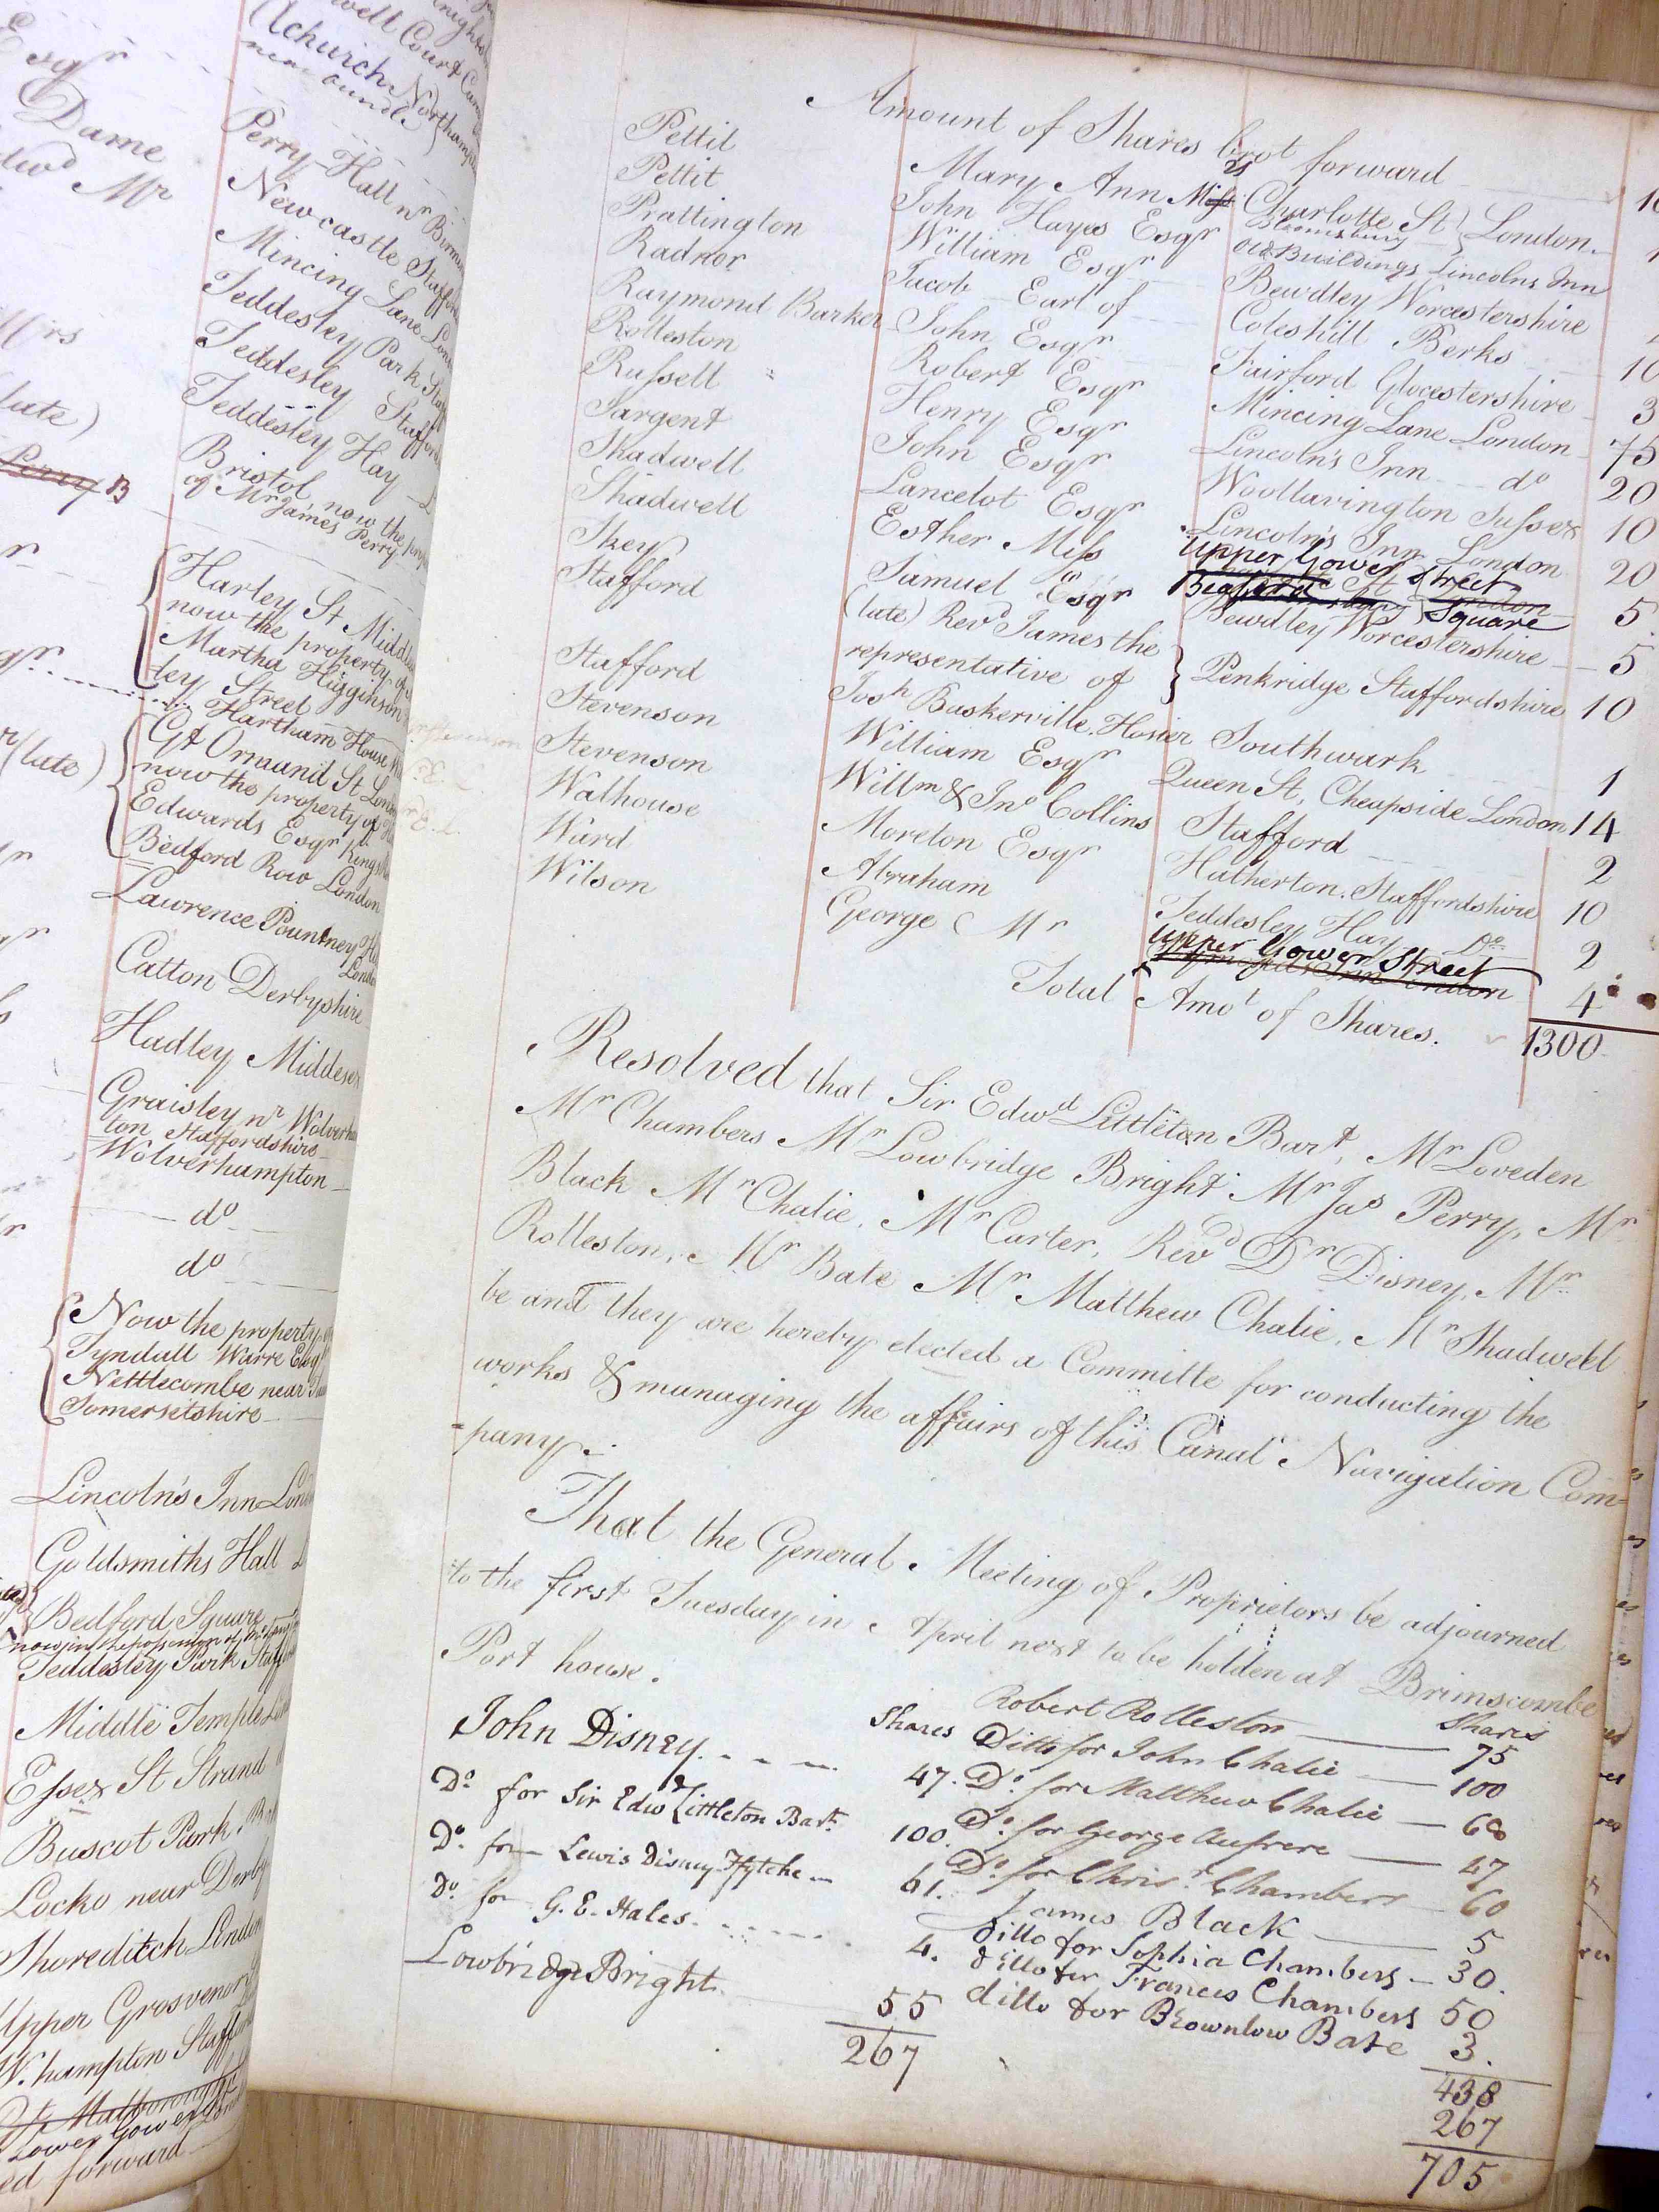 Esqr
Dame
Mr
Mrs
(late)
Perry B
(late)
well Court
Achurch Northampton
near Oundle
Perry-Hall nr Birm
Newcastle Stafford
Mincing Lane Lon
Teddesley Park Staff
Teddesley Stafford
Teddesley Hay
Bristol now the prop
of Mr James Perry
Harley St Middle
now the property of
Martha Higginson
ley Street
Hartham House
Gt Ormand St London
now the property of
Edwards Esqr Kings
Bedford Row London
Lawrence Pountney
London
Catton Derbyshire
Hadley Middesex
Graisley nr Wolverham
ton Staffordshire
Wolverhampton
do
do
Now the property of
Tyndall Warre Esqr
Nettlecombe near
Somersetshire
Lincoln's Inn Lond
Goldsmiths Hall
Bedford Square
now in the possession of
Teddesley Park Staff
Middle Temple
Essex St Strand
Buscot Park
Locko near Derby
Shoreditch London
Upper Grosvenor
W.hampton Stafford
Lower Gower
ed forward
Amount of Shares brot forward
Pettit Mary Ann Miss Charlotte St Bloomsbury London
Pettit John Hayes Esqr Old Buildings Lincolns Inn
Prattington William Esqr Bewdley Worcestershire
Radnor Jacob Earl of Coleshill Berks 10
Raymond Barker John Esqr Fairford Glocestershire 3
Rolleston Robert Esqr Mincing Lane London 75
Russell Henry Esqr Lincoln's Inn do 20
Sargent John Esqr Woollavington Sussex 10
Shadwell Lancelot Esqr Lincoln's Inn London 20
Shadwell Esther Miss Upper Gower Street Bedford Square 5
Skey Samuel Esqr Bewdley Worcestershire 5
Stafford (late) Revd James the
representative of } Penkridge Staffordshire 10
Stafford Josh Baskerville. Hosier Southwark 1
Stevenson William Esqr Queen St, Cheapside London 14
Stevenson Willm & Jno Collins Stafford 2
Walhouse Moreton Esqr Hatherton. Staffordshire 10
Ward Abraham Teddesley Hay Do 2
Wilson George Mr Upper Gower Street 4
Total Amot of Shares. 1300
Resolved that Sir Edwd Littleton Bart, Mr Loveden
Mr Chambers Mr Lowbridge Bright Mr Jas Perry, Mr
Black Mr Chalie, Mr Carter, Revd Dr Disney, Mr
Rolleston, Mr Bate Mr Matthew Chalie, Mr Shadwell
be and they are hereby elected a Committe for conducting the
works & managing the affairs of this Canal Navigation Com=
=pany.
That the General Meeting of Proprietors be adjourned
to the first Tuesday in April next to be holden at Brimscombe
Port house.
Shares
John Disney 47.
Do for Sir Edwd Littleton Bart 100.
Do for Lewis Disney Ffytche 61.
Do for G. E. Hales 4.
Lowbridge Bright 55
267
Shares
Robert Rolleston 75
Ditto for John Chalie 100
Do for Matthew Chalie 68
Do for George Aufrere 47
Do for Chrisr Chambers 60
James Black 5
ditto for Sophia Chambers 30.
ditto for Frances Chambers 50
ditto for Brownlow Bate 3.
438
267
705